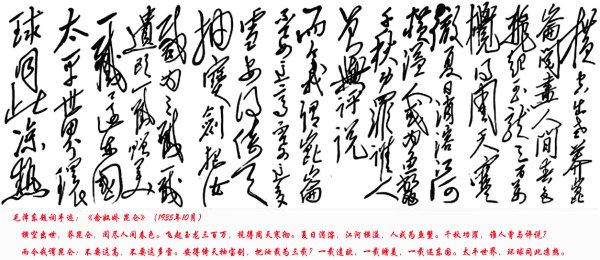 横空出世莽崑
崙閱盡人間春色
飛起玉龍三百万
攪得周天寒
徹夏日消溶江河
横溢人或为鱼鳖
千秋功罪誰人
曾與評说
而今我謂崑崙
不要這高不要這多
雪安得倚天
抽寶劍把汝
裁为三截一截
遺欧一截贈美
一截还東國
太平世界環
球同此凉熱
毛泽东诗词手迹：《念奴娇 昆仑》（1935年10月）
横空出世，莽昆仑，阅尽人间春色。飞起玉龙三百万，搅得周天寒彻。夏日消溶，江河横溢，人或为鱼鳖。千秋功罪，谁人曾与评说？
而今我谓昆仑：不要这高，不要这多雪。安得倚天抽宝剑，把汝裁为三截？一截遗欧，一截赠美，一截还东国。太平世界，环球同此凉热。